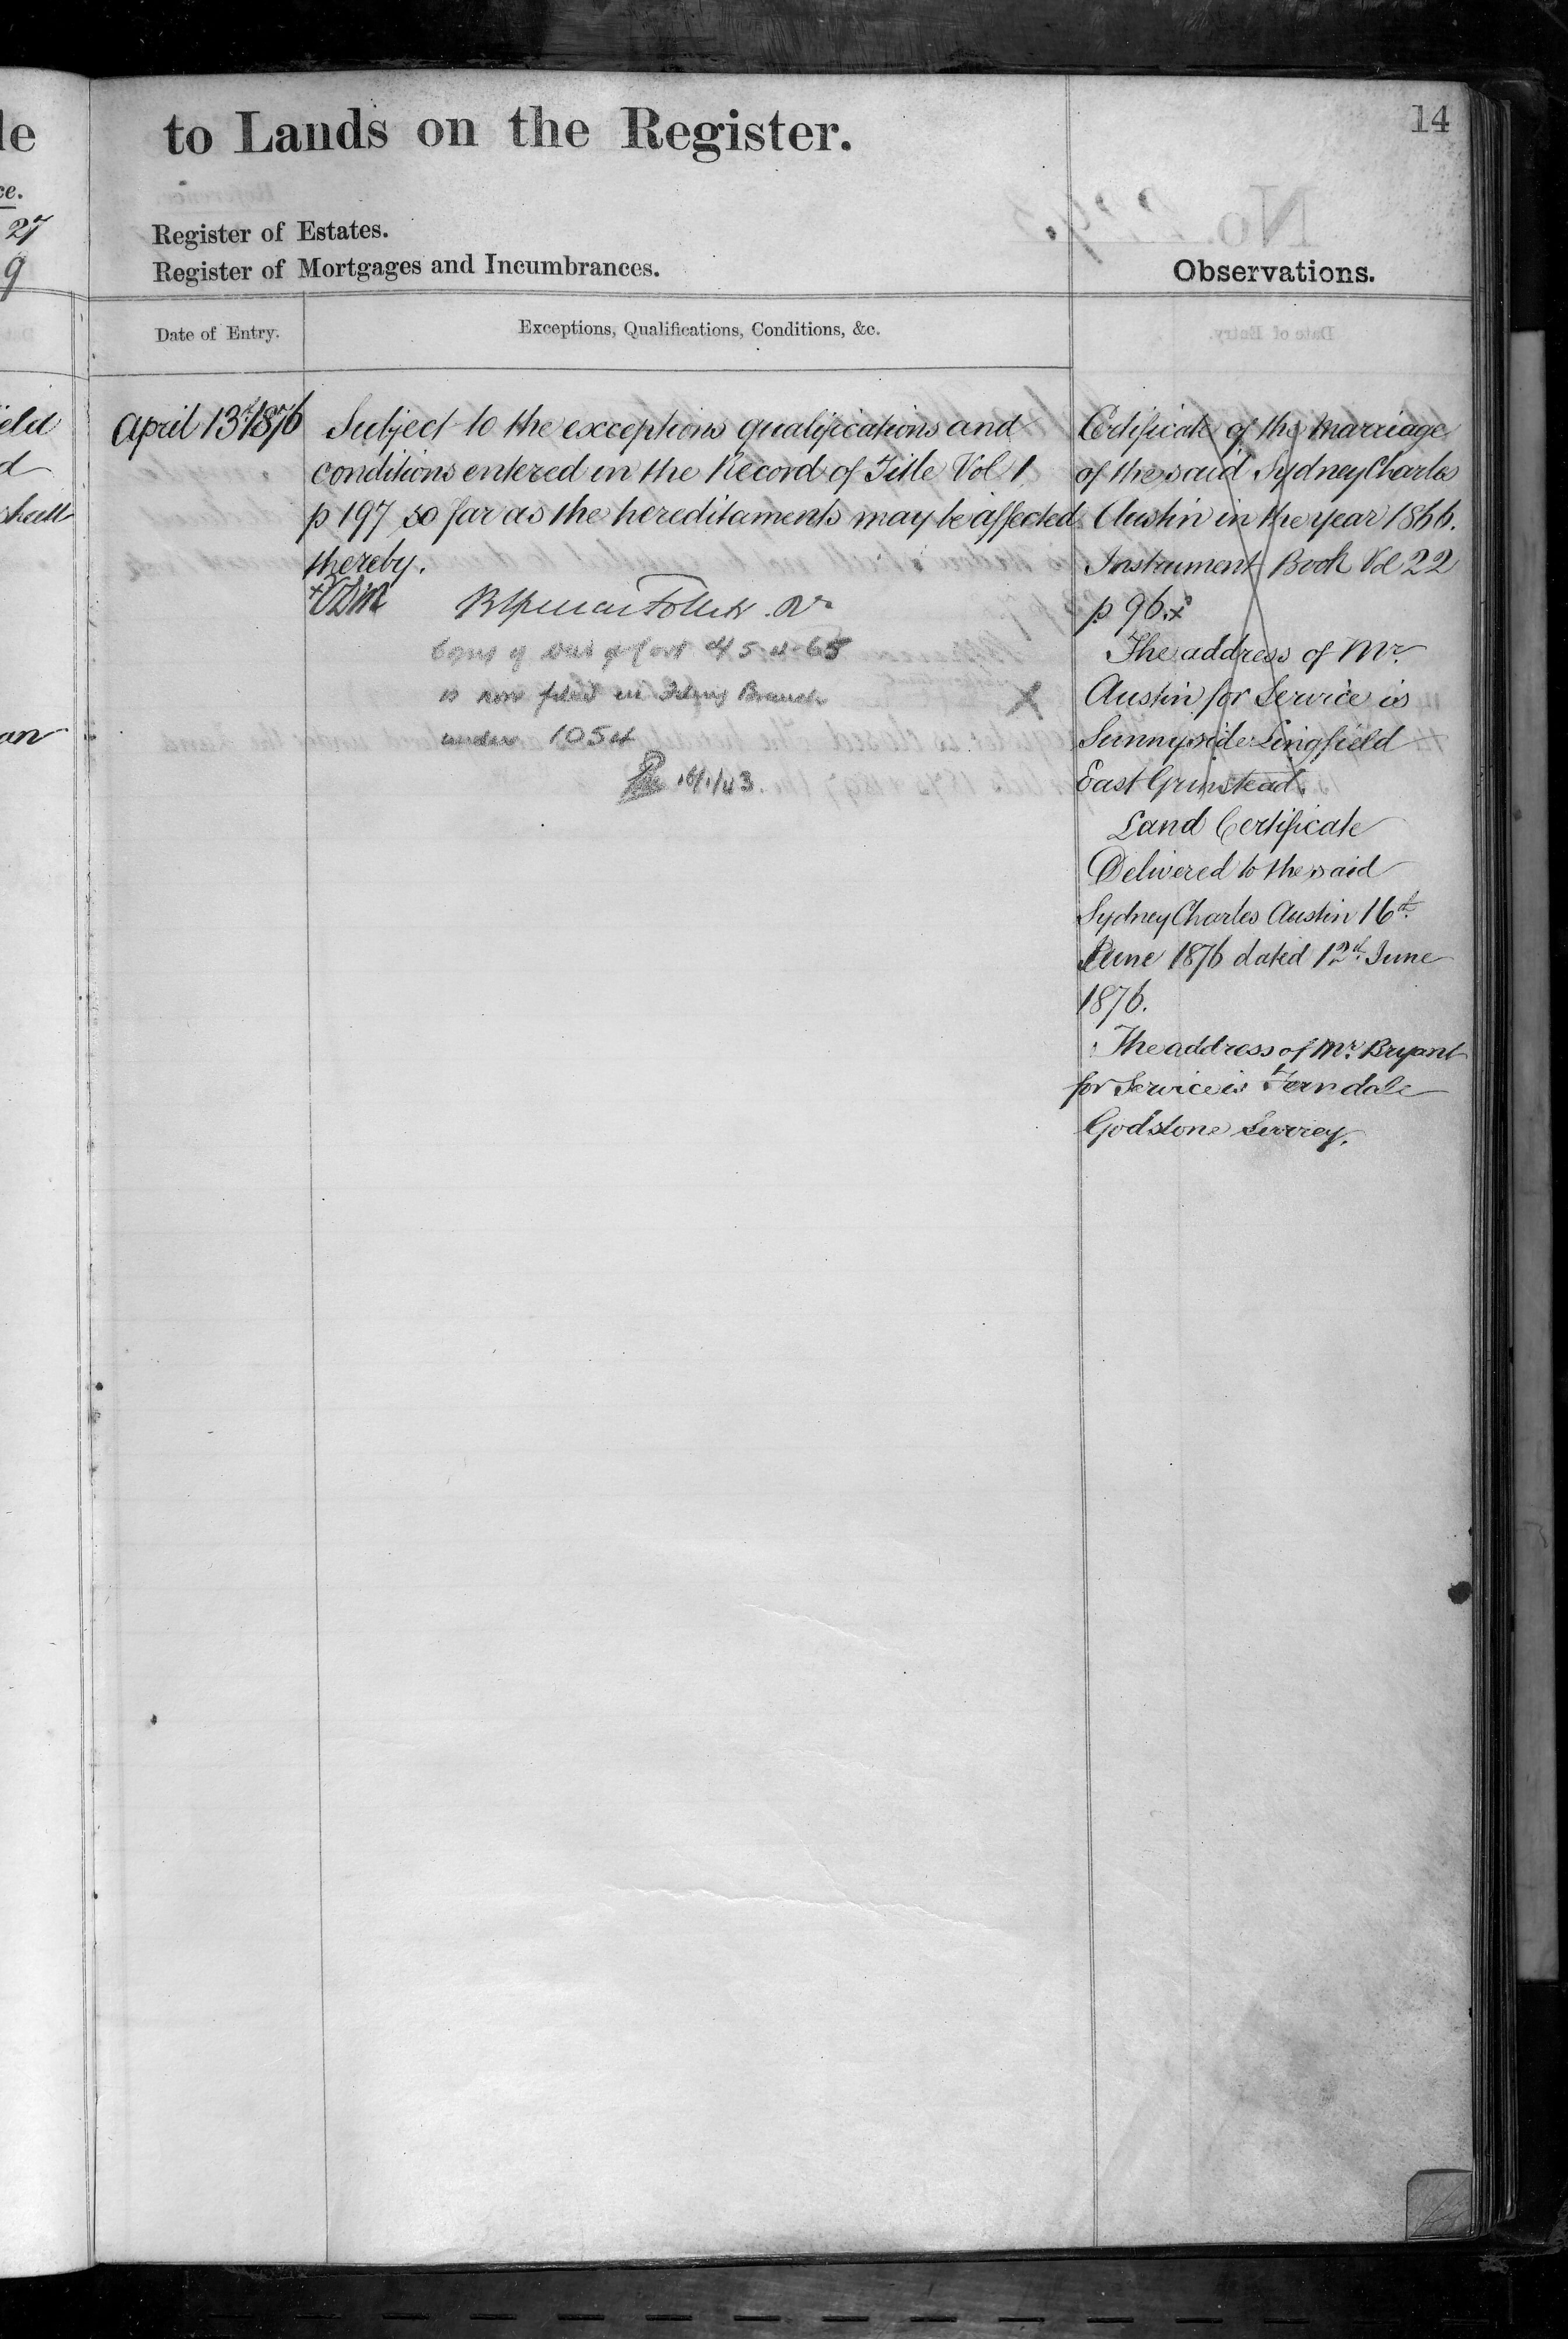 to Lands on the Register.
14
Register of Estates.
Register of Mortgages and Incumbrances.
Observations.
Date of Entry.
Exceptions, Qualifications, Conditions, &c.
27
9
April 13th 1876
Subject to the exceptions qualifications and
conditions entered in the Record of Title Vol 1
p 197 so far as the hereditaments may be affected
thereby.
is now filed in Filing Branch
under 1054
Certificate of the Marriage
of the said Sydney Charles
Austin in the year 1866.
Instrument Book Vol 22
p 96.
The address of Mr.
Austin for Service is
Sunnyside Lingfield
East Grinstead.
Land Certificate
Delivered to the said
Sydney Charles Austin 16th
June 1876 dated 12th June
1876.
The address of Mr. Bryant
for Service is Ferndale
Godstone Surrey.